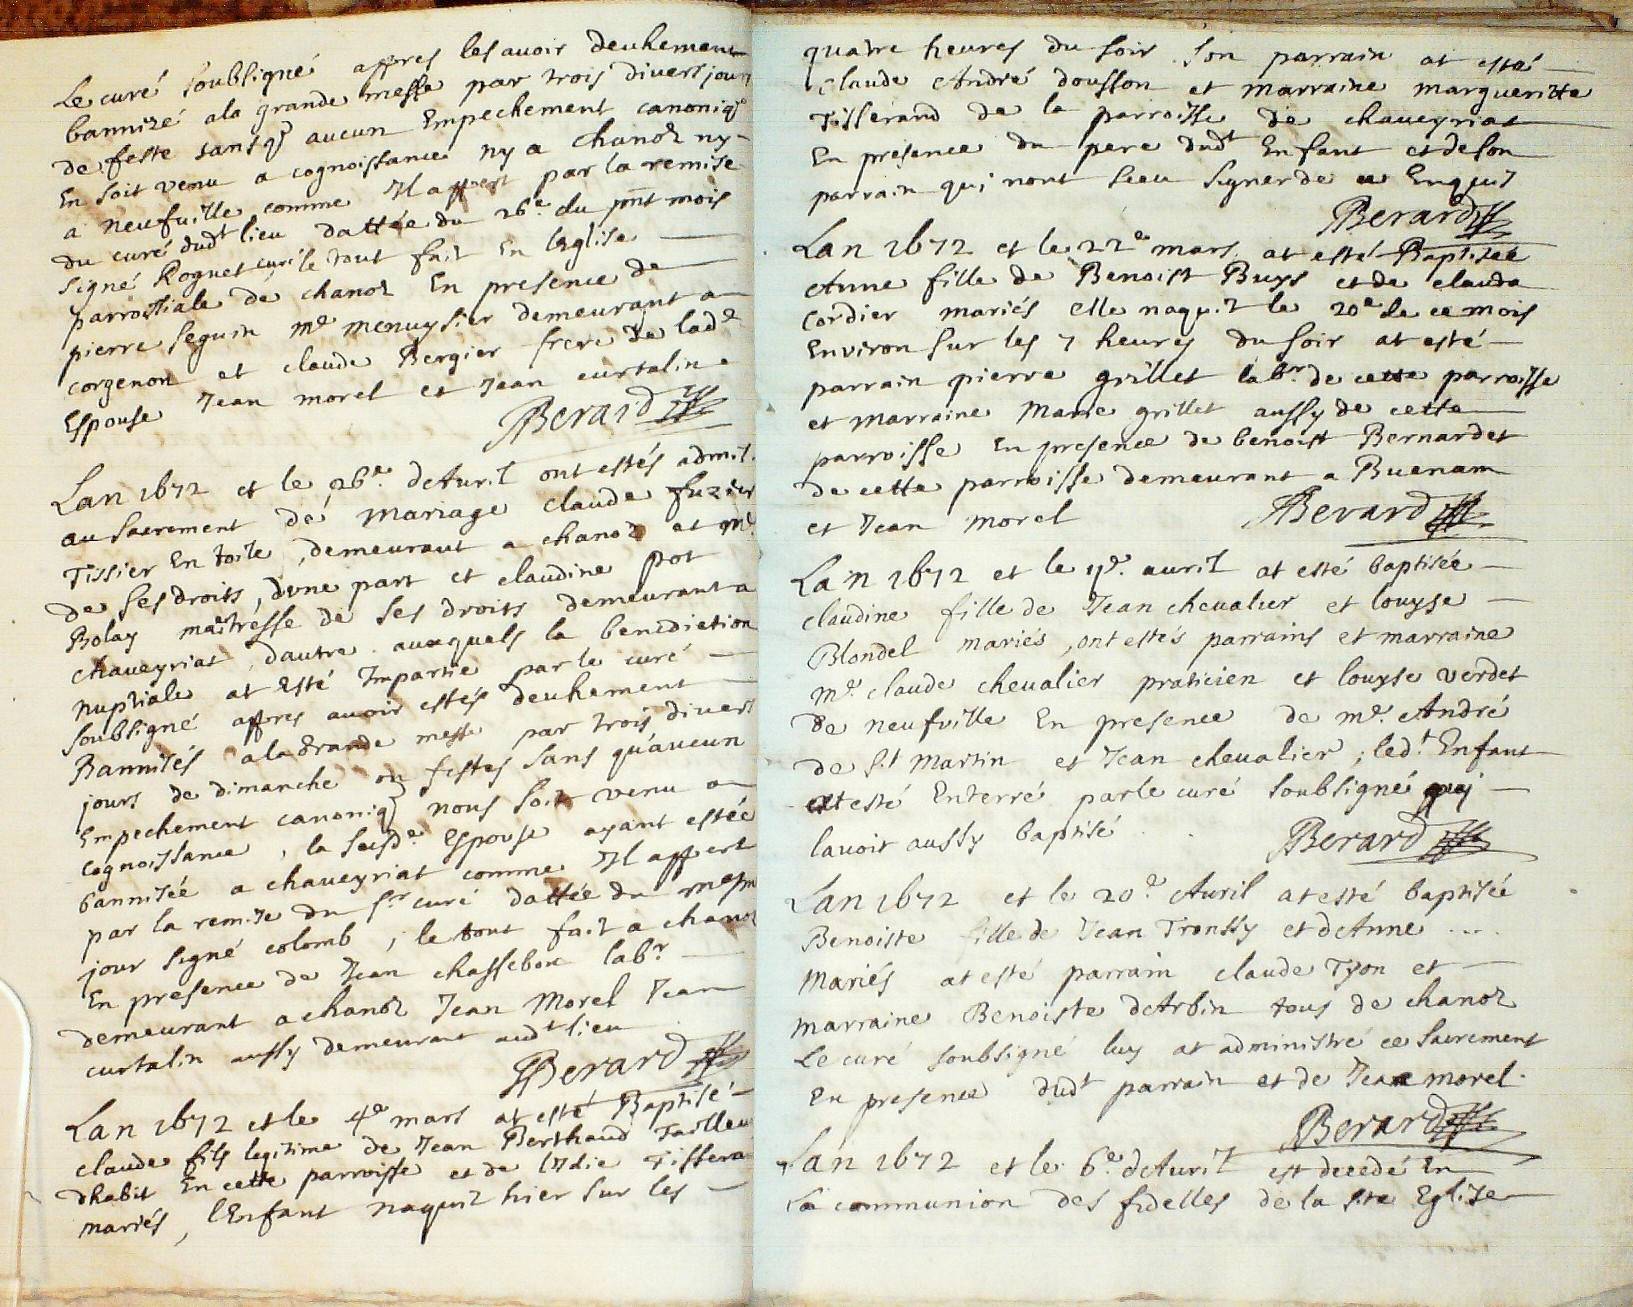 Le curé soubsigné appres les avoir deuhement
bannizé ala grande messe par trois divers jours
de feste sans q̃ aucun Empechement canoniq̃
En soit venu a cognoissance ny a chanoz ny
a neufville comme Il appert par la remise
du curé dudt lieu dattée du 26e du pnt mois
signé Roguet curé le tout fait En leglise
parroissiale de chanoz En presence de
pierre seguin me menuysier demeurant a
corgenon et claude Bergier frere de lade
Espouse Jean morel et Jean curtalin
Berard
Lan 1672 et le 26e d'Avril ont estés admis
au sacrement de mariage claude fuzier
Tissier En toile, demeurant a chanoz et me
de ses droits, dune part et claudine pot
Bolay maitresse de ses droits demeurant a
chaveyriat, dautre auxquels la benediction
nuptiale at Esté Impartie par le curé
soubsigné appres avoir estés deuhement
Bannisés ala Grande messe par trois divers
jours de dimanche ou festes sans qu'aucun
Empechement canoniq̃ nous soit venu a
cognoissance, la susde Espouse ayant estée
bannisée a chaveyriat comme Il appert
par la remise du sr curé dattée du mesme
jour signé colomb, le tout fait a chanoz
En presence de Jean chassebon labr
demeurant a chanoz Jean Morel Jean
curtalin aussy demeurant audt lieu
Berard
Lan 1672 et le 4e mars at esté Baptisé
claude fils legitime de Jean Berthaud Tailleur
dhabit En cette parroisse et de Izdie Tissera
mariés, l'Enfant naquit hier sur les
quatre heures du soir son parrain at esté
claude André dousson et marraine margueritte
Tisserand de la parroisse de chaveyriat
En presence du pere dudt Enfant et de son
parrain qui nont sceu signer de ce Enquis
Berard
Lan 1672 et le 22e mars at esté Baptisée
Anne fille de Benoist Buys et de clauda
cordier mariés elle naquit le 20e de ce mois
Environ sur les 7 heures du soir at esté
parrain pierre grillet labr de cette parroisse
et marraine Marie grillet aussy de cette
parroisse En presence de benoist Bernardet
de cette parroisse demeurant a Buenam
et Jean morel Berard
Lan 1672 et le avril at esté baptisée
claudine fille de Jean chevalier et louyse
Blondel mariés, ont estés parrains et marraine
me claude chevalier praticien et louyse verdet
de neufville En presence de me André
de St Martin et Jean chevalier; ledt Enfant
at esté Enterré par le curé soubsigné qui
lavoit aussy baptisé Berard
Lan 1672 et le 20e Avril at esté baptisée
Benoiste fille de Jean Tronssy et dAnne ....
Mariés at esté parrain claude Tyon et
marraine Benoiste dArbin tous de chanoz
Le curé soubsigné luy at administré ce sacrement
En presence dudt parrain et de Jean morel.
Berard
Lan 1672 et le 6e dAvril est decedé En
La communion des fidelles de la ste Eglise